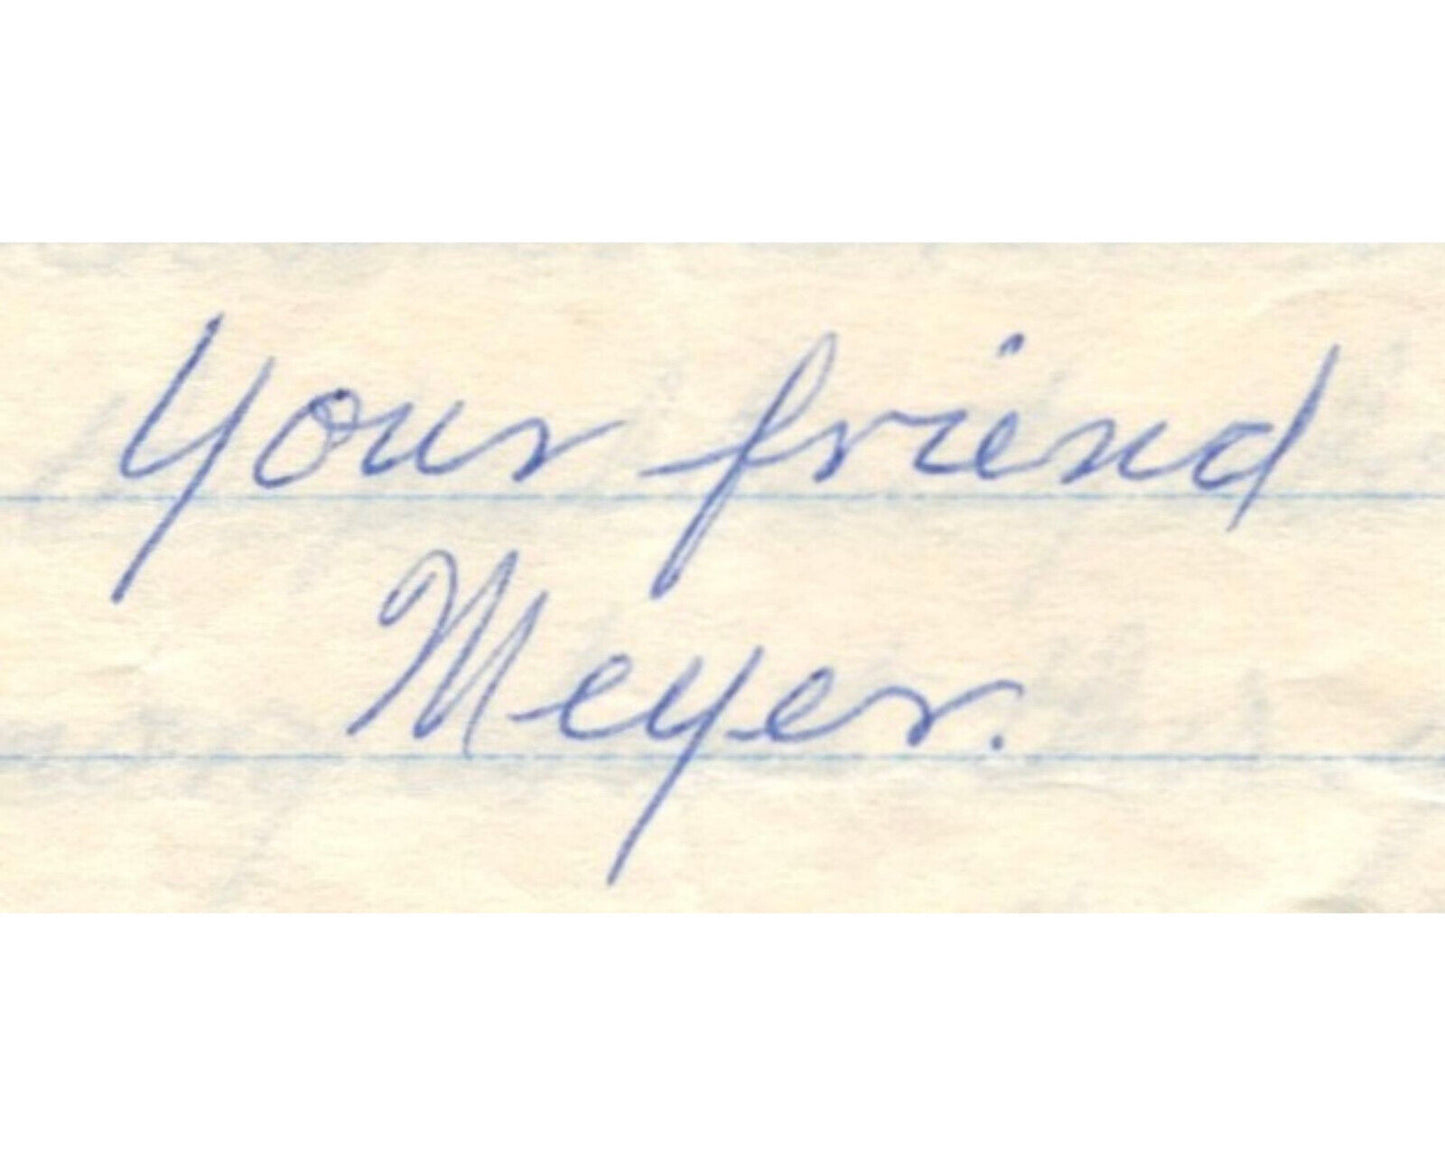 Your friend
Meyer.